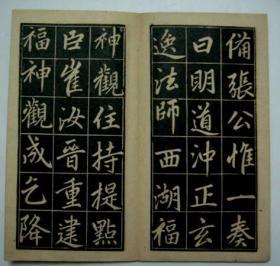 備張公惟一奏
曰明道沖正玄
逸法師西湖福
神觀住持提點
臣崔汝晉重建
福神觀成乞降